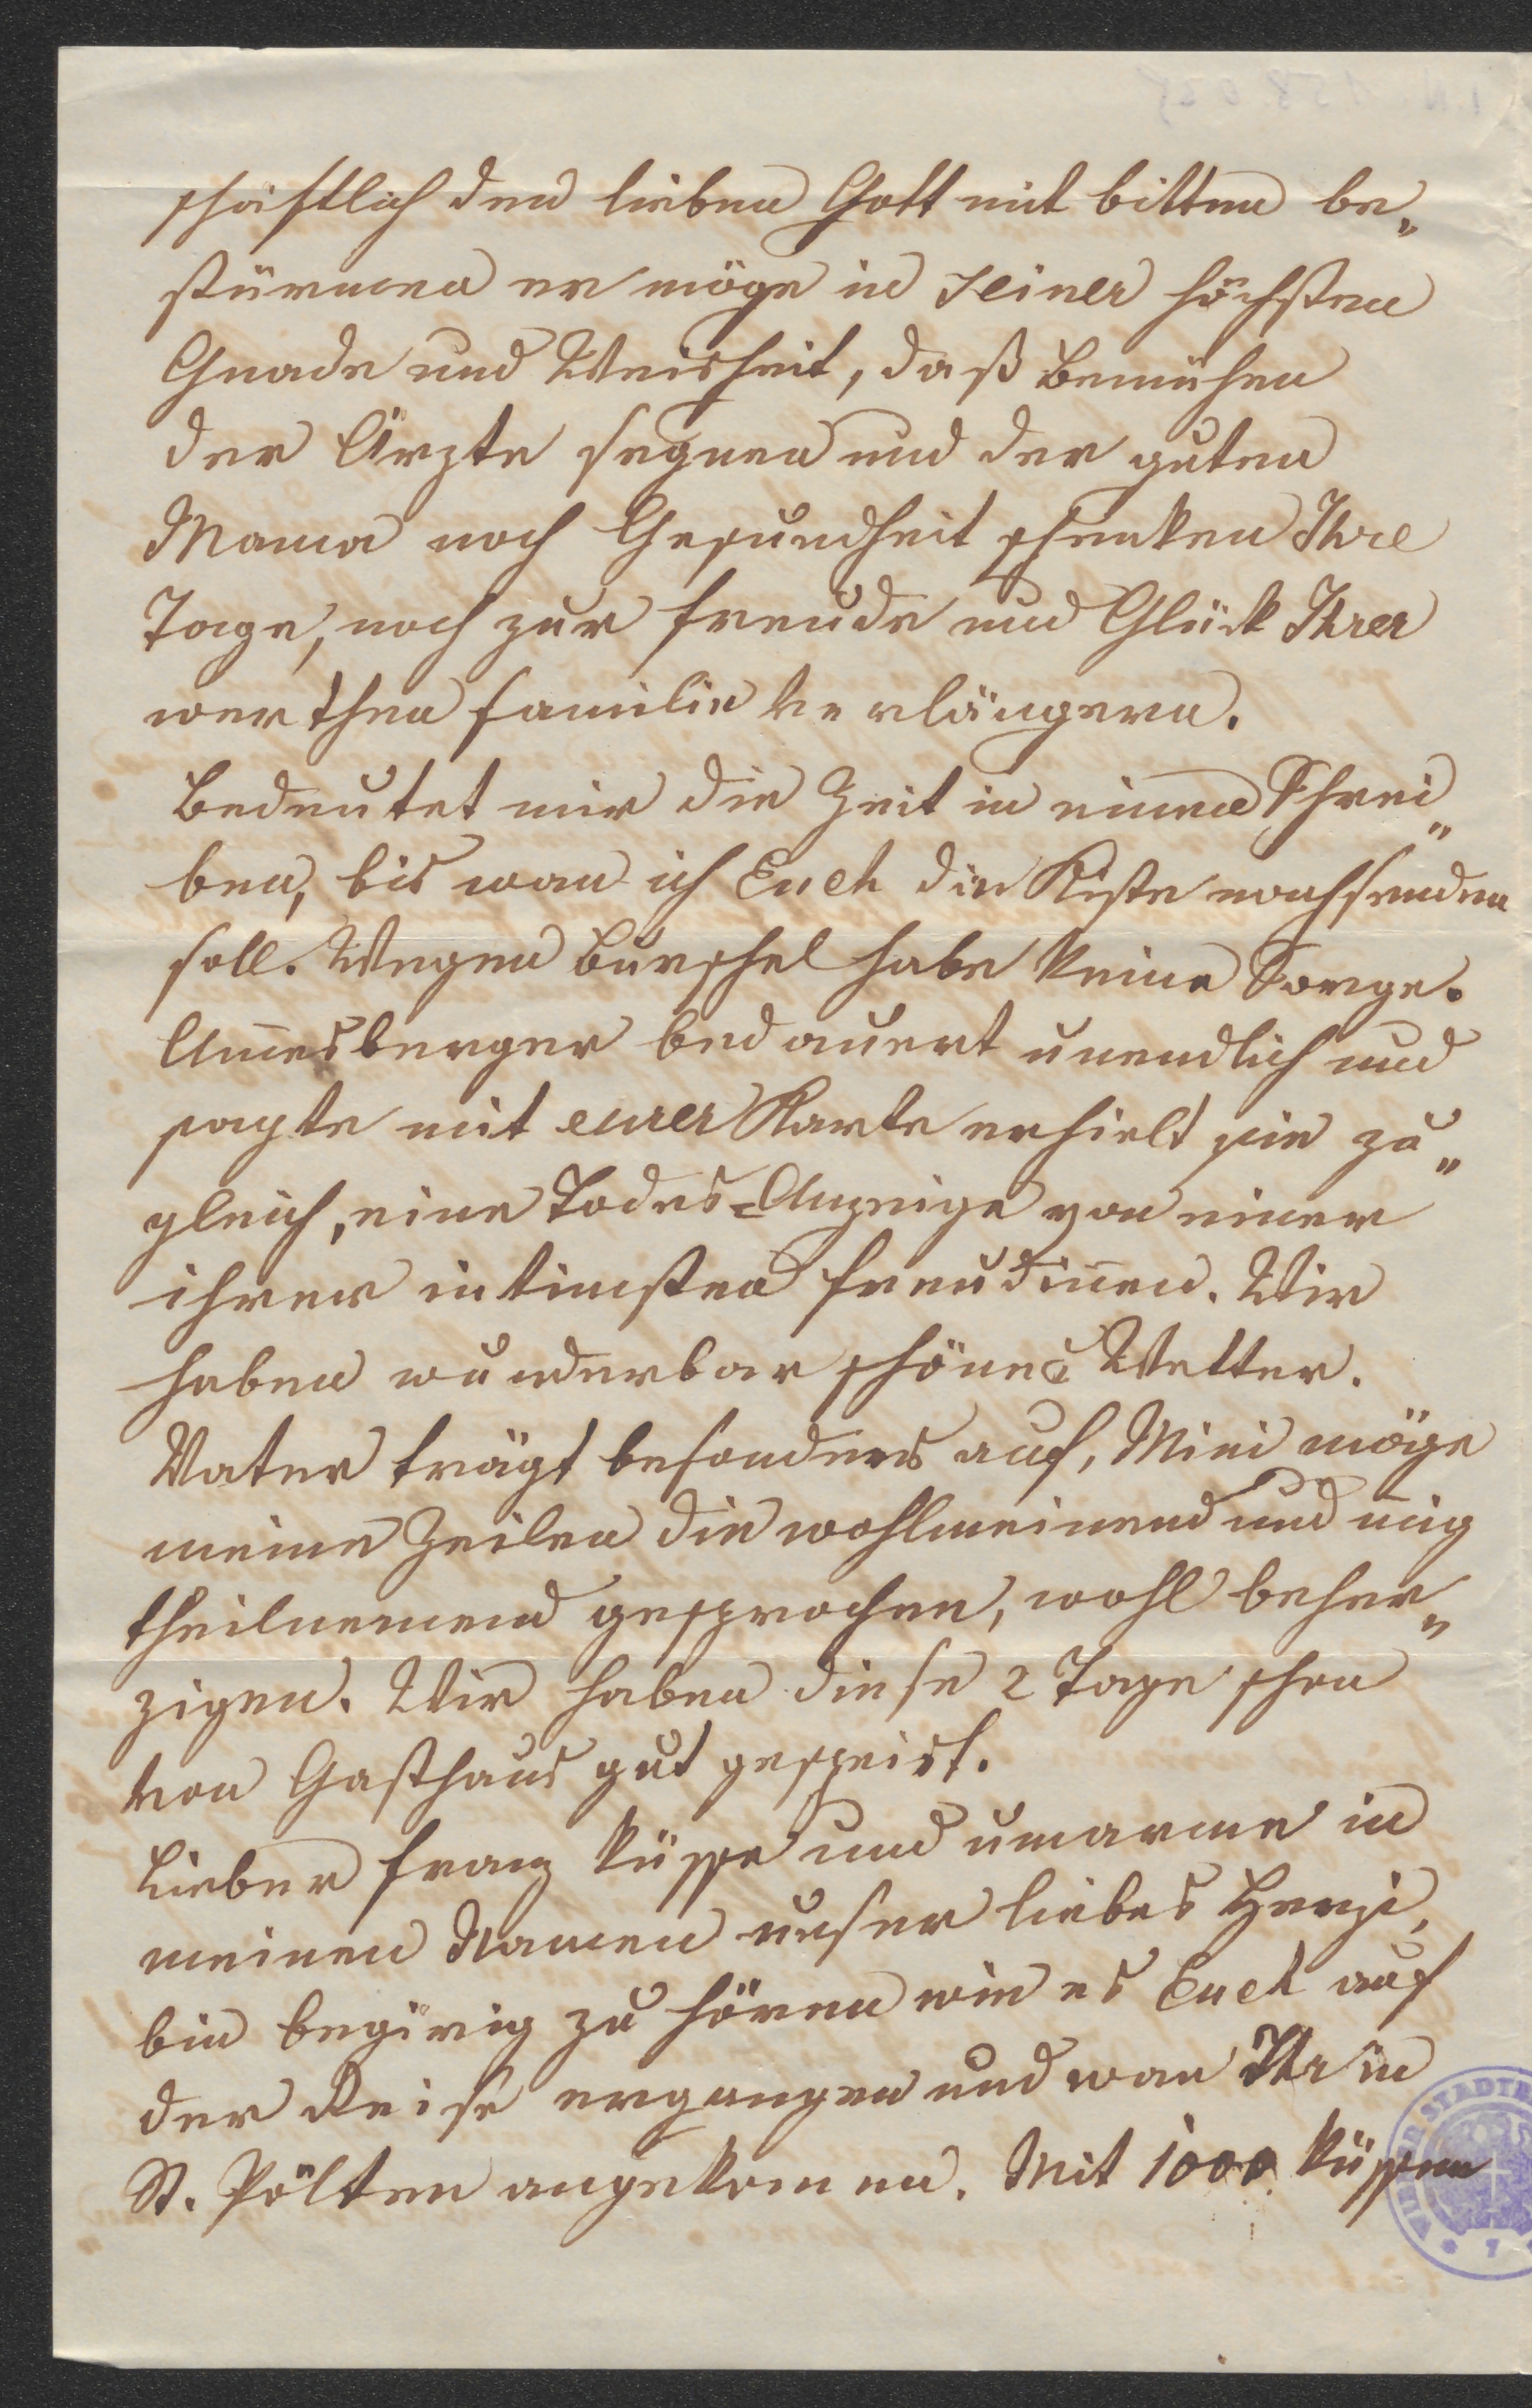 schäftlich den lieben Gott mit bitten be„
stürmen er möge in Seiner höchsten
Gnade und Weisheit, daß Bemühen
der Ärzte segnen und der guten
Mama noch Gesundheit schenken Ihre
Tage, noch zur Freude und Glück Ihrer
werthen Familie verlängern.
Bedeutet mir die Zeit in einen Schrei„
ben, bis wan ich Euch die Kiste nachsenden
soll. Wegen Burschel habe keine Sorge.
Am̅esberger bedauert unendlich und
sagte mit eurer Karte erhielt sie zu„
gleich, eine Todes=Anzeige von einer
ihrer intimsten Freudin̅en. Wir
haben wunderbar schönes Wetter.
Vater trägt besonders auf, Mini möge
meine Zeilen die wohlmeinend und
theilnemend gesprochen, wohl beher„
zigen. Wir haben diese 2 Tage schon
von Gasthaus gut gespeist.
Lieber Franz küsse und umarme in
meinen Namen unser liebes Herzi,
bin begirig zu hören wie es Euch auf
der Reise ergangen und wan Ihr in
St. Pölten angekomen. Mit 1000 küssen
WIENER STADTB